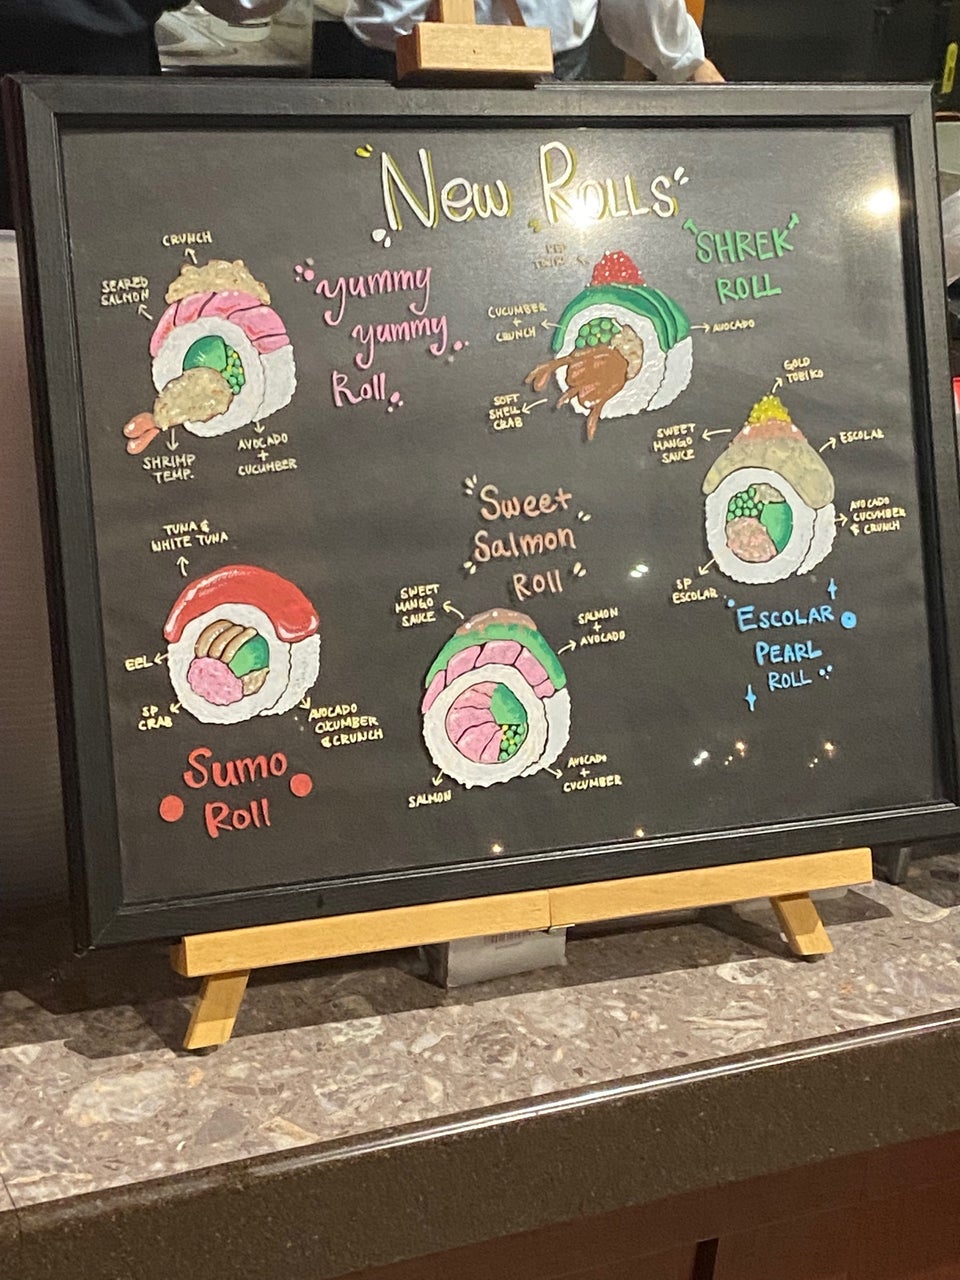 New Rolls
CRUNCH
SEARED
SALMON
yummy
yummy
Roll
SHRIMP
TEMP.
AVOCADO
+
CUCUMBER
SHREK
ROLL
CUCUMBER
+
CRUNCH
AVOCADO
SOFT
SHELL
CRAB
GOLD
TOBIKO
SWEET
MANGO
SAUCE
ESCOLAR
AVOCADO
CUCUMBER
& CRUNCH
SP
ESCOLAR
ESCOLAR
PEARL
ROLL
TUNA &
WHITE TUNA
EEL
SP
CRAB
AVOCADO
CUCUMBER
& CRUNCH
Sumo
Roll
Sweet
Salmon
Roll
SWEET
MANGO
SAUCE
SALMON
+
AVOCADO
SALMON
AVOCADO
+
CUCUMBER